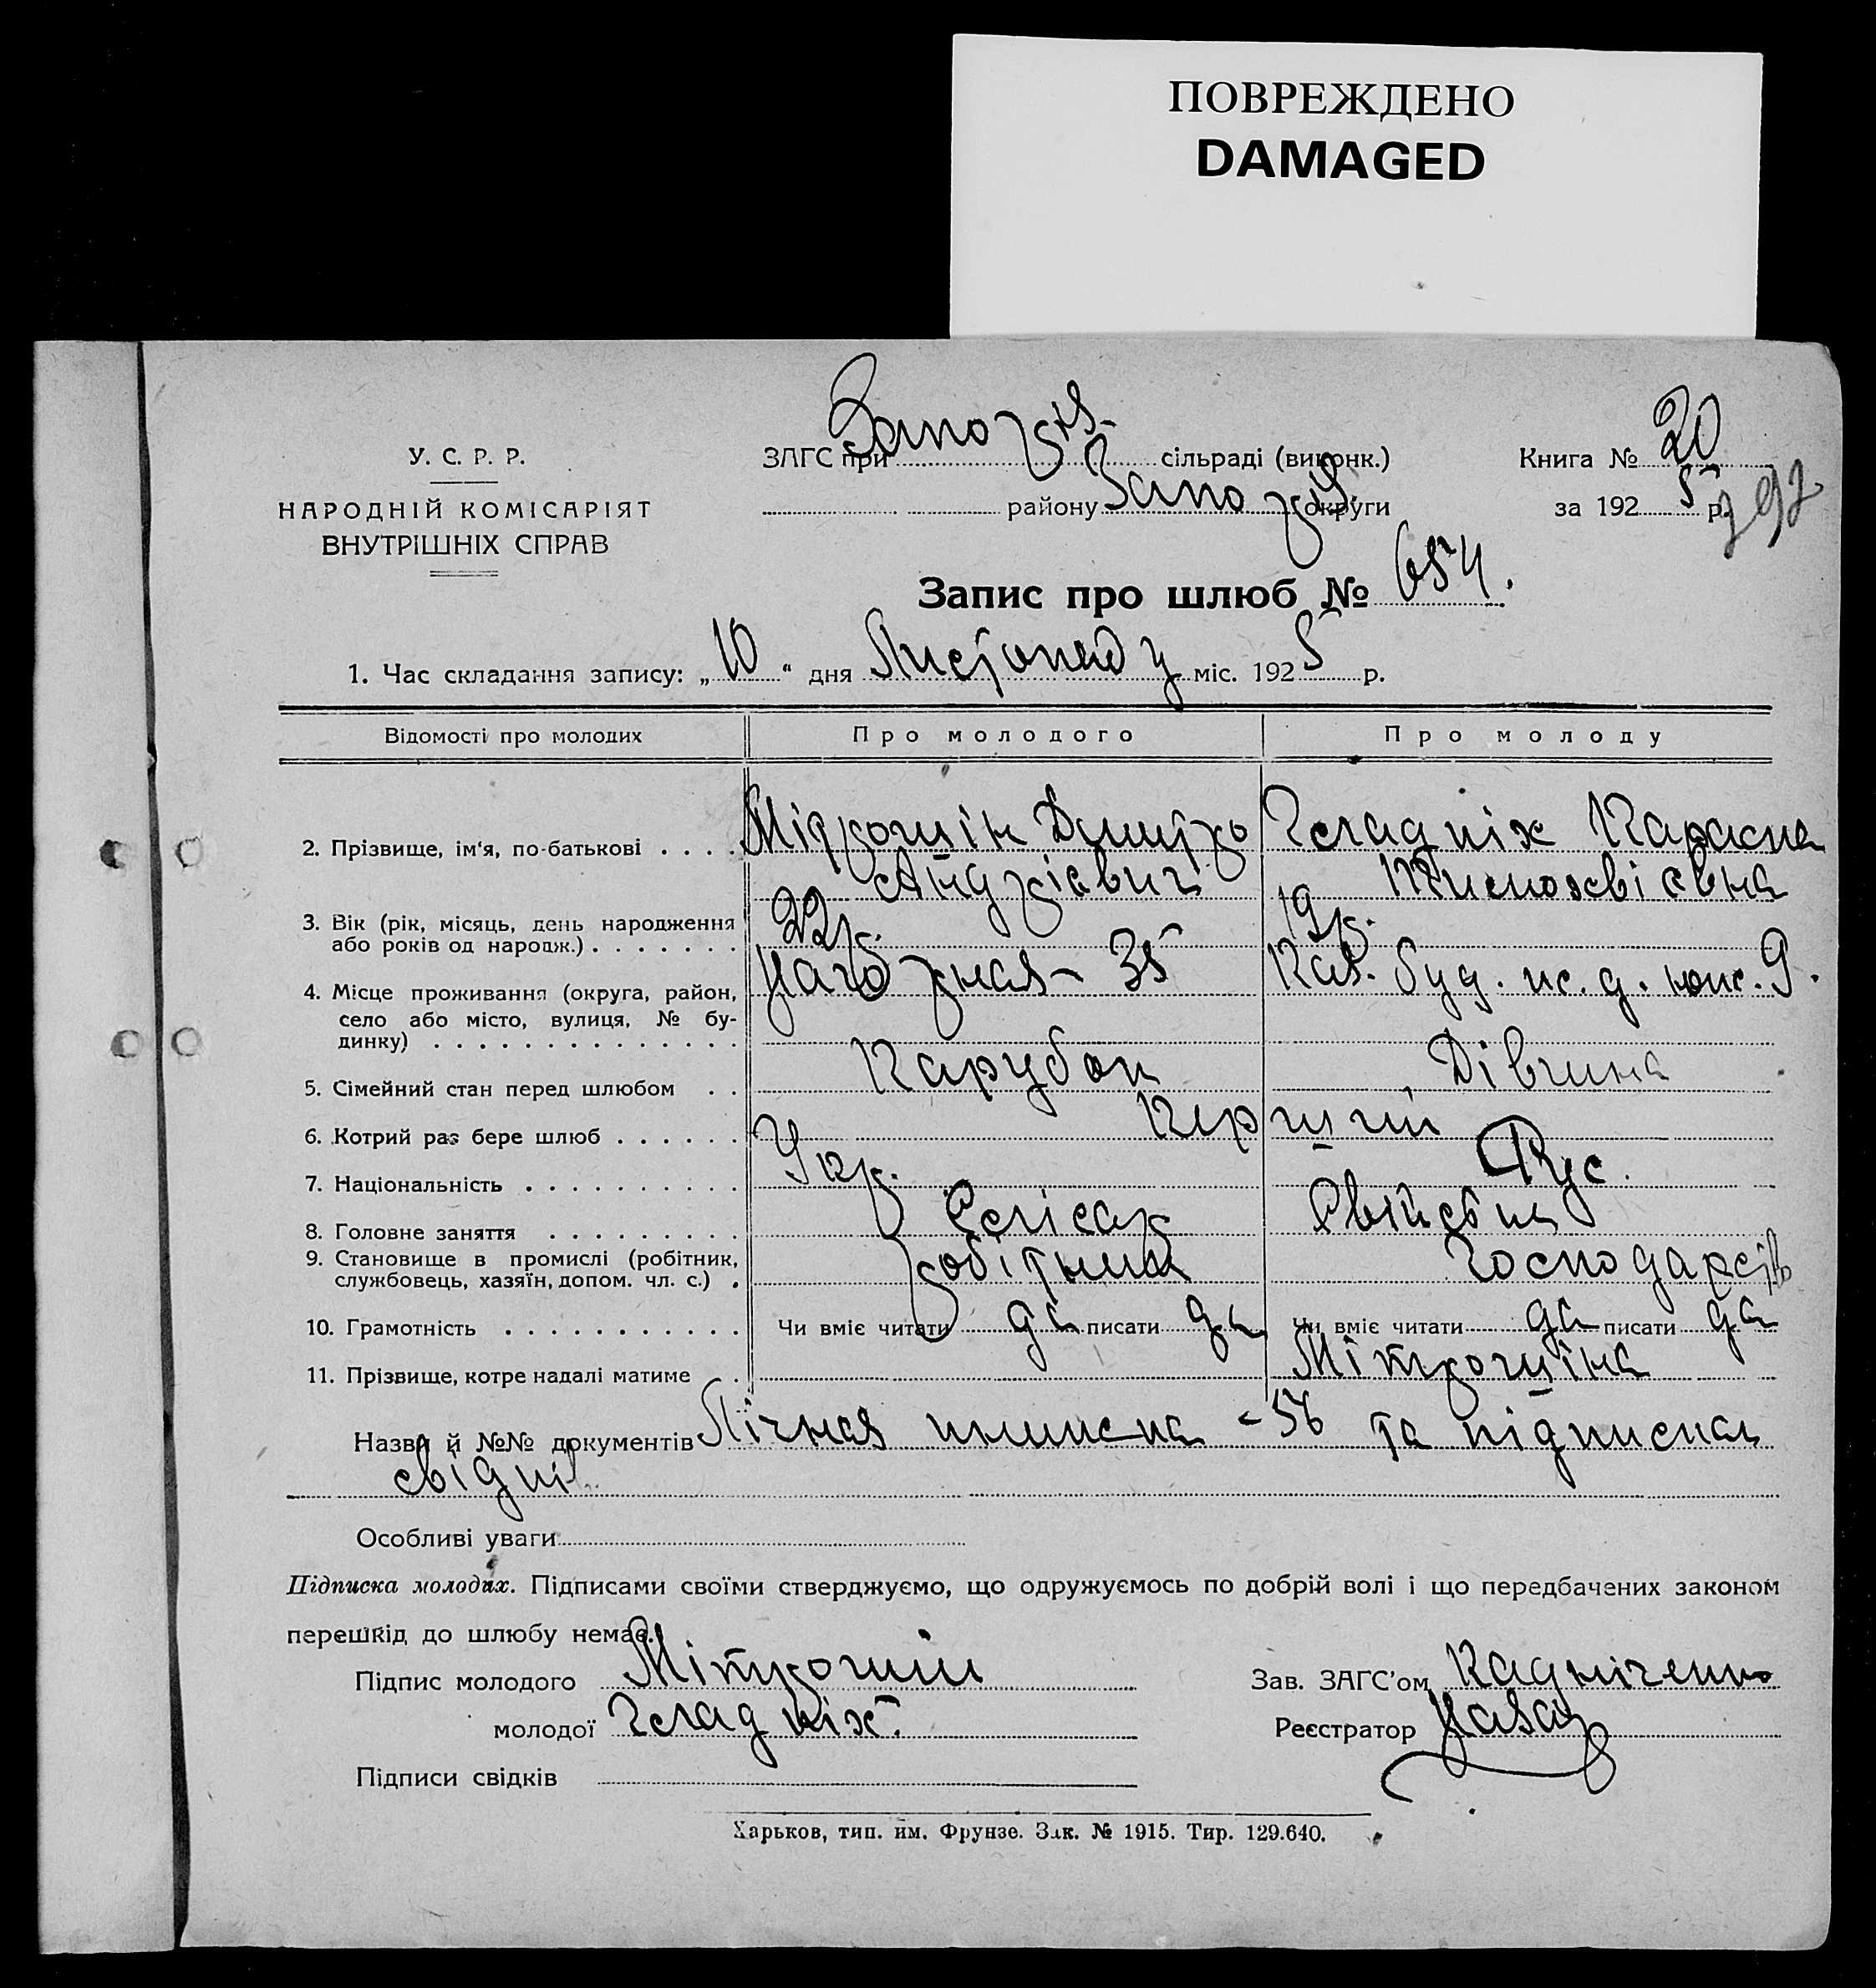 ПОВРЕЖДЕНО
DAMAGED
У. С. Р. Р.
НАРОДНІЙ КОМІСАРІЯТ
ВНУТРІШНІХ СПРАВ
ЗАГС при Запоріз. сільраді (виконк.)
району Запоріз. округи
Книга № 20
за 1925 р.
292
Запис про шлюб № 654.
1. Час складання запису: „10“ дня Листопаду міс. 1925 р.
Відомості про молодих Про молодого Про молоду
2. Прізвище, ім‘я, по-батькові Мітрошін Дмитро Гладких
Андрієвич
3. Вік (рік, місяць, день народження
або років од народж.) 22р. 19р.
4. Місце проживання (округа, район,
село або місто, вулиця, № бу-
динку) Нагорная - 35 Каз. буд.
5. Сімейний стан перед шлюбом Парубок Дівчина
6. Котрий раз бере шлюб Перший
7. Національність Укр. Рус.
8. Головне заняття Слісар Свійське
9. Становище в промислі (робітник,
службовець, хазяїн, допом. чл. с.) робітник господарств
10. Грамотність Чи вміє читати да писати да Чи вміє читати да писати да
11. Прізвище, котре надалі матиме Мітрошіна
Назви й №№ документів Лічная книжка 56 та підписка
свідків
Особливі уваги
Підписка молодих. Підписами своїми стверджуємо, що одружуємось по добрій волі і що передбачених законом
перешкід до шлюбу немає.
Підпис молодого Мітрошін Зав. ЗАГС’ом
молодої Гладких Реєстратор
Підписи свідків
Харьков, тип. им. Фрунзе. Зак. № 1915. Тир. 129.640.